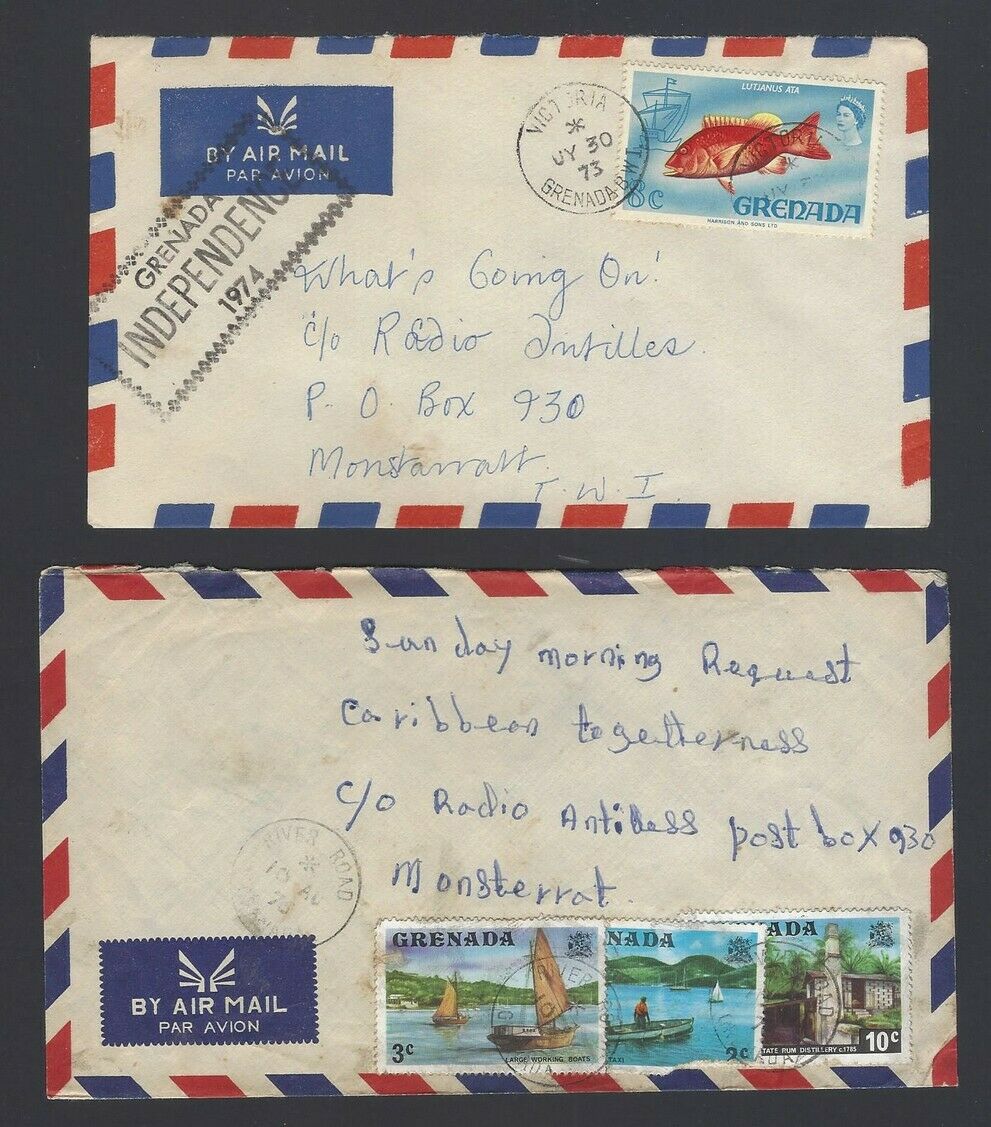 BY AIR MAIL
PAR AVION
GRENADA
INDEPENDENCE
1974
VICTORIA
JY 30
73
GRENADA B.W.I.
LUTJANUS ATA
8c
GRENADA
HARRISON AND SONS LTD
What's Going On'
c/o Radio Antilles.
P. O. Box 930
Monstarratt.
T. W. I.
Sunday morning Request
Caribbean togetterness
C/o Radio Antiless post box 930
Monsterrat.
RIVER ROAD
BY AIR MAIL
PAR AVION
GRENADA
3c
LARGE WORKING BOATS
NADA
TAXI
2c
ADA
TATE RUM DISTILLERY c.1785
10c